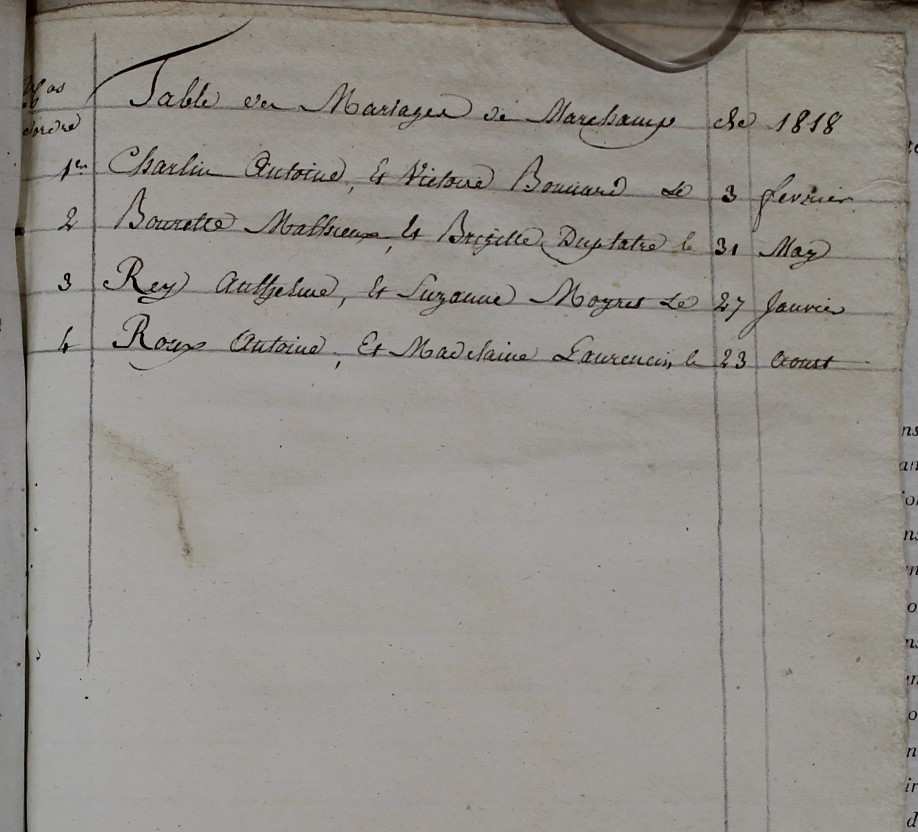 Nos
d'ordre
Table des Mariages de Marchamp de 1818
1er Charlin Antoine, et Victoire Bonnard le 3 fevrier
2 Bourette Mathieux, et Brigitte Duplatre le 31 May
3 Rey Anthelme, et Suzanne Moyret Le 27 Janvier
4 Roux Antoine, Et Madelaine Laurencin, le 23 Aoust